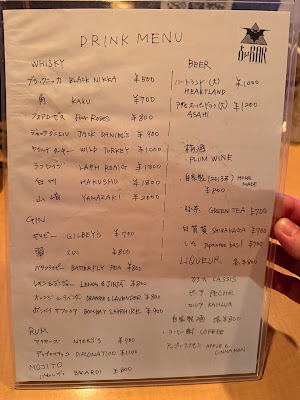 DRINK MENU
BAR
WHISKY
ブラックニッカ BLACK NIKKA ¥500
角 KAKU ¥700
フォアローゼス Four Roses ¥800
ジャックダニエル JACK DANIEL'S ¥900
ワイルドターキー WILD TURKEY ¥1000
ラフロイグ LAPHROAIG ¥1800
白州 HAKUSHU ¥1800
山崎 YAMAZAKI ¥2000
GIN
ギルビー GILBEY'S ¥700
翠 SUI ¥800
バタフライピー BUTTERFLY PEA ¥800
LEMON & ¥800
オレンジ ラベンダー ORANGE & LAVENDER ¥800
ボンベイサファイア BOMBAY SAPPHIRE ¥900
RUM
マイヤーズ MYERS'S ¥900
ディプロマティコ DIPLOMATICO ¥1100
MOJITO
バカルディ BACARDI ¥800
BEER
ハートランド (大) ¥1000
HEARTLAND
アサヒスーパードライ (大) ¥1200
ASAHI
梅酒
PLUM WINE
・自家製 (2013年) HOME MADE
¥800
緑茶 GREEN TEA ¥700
SHIRAKAGA ¥700
しそ (Japanese basil) ¥700
LIQUEUR 各¥800
カシス CASSIS
ピーチ PECHE
カルーア KAHLUA
自家製酒 各¥800
・コーヒー酎 COFFEE
・アップルシナモン APPLE & CINNAMON